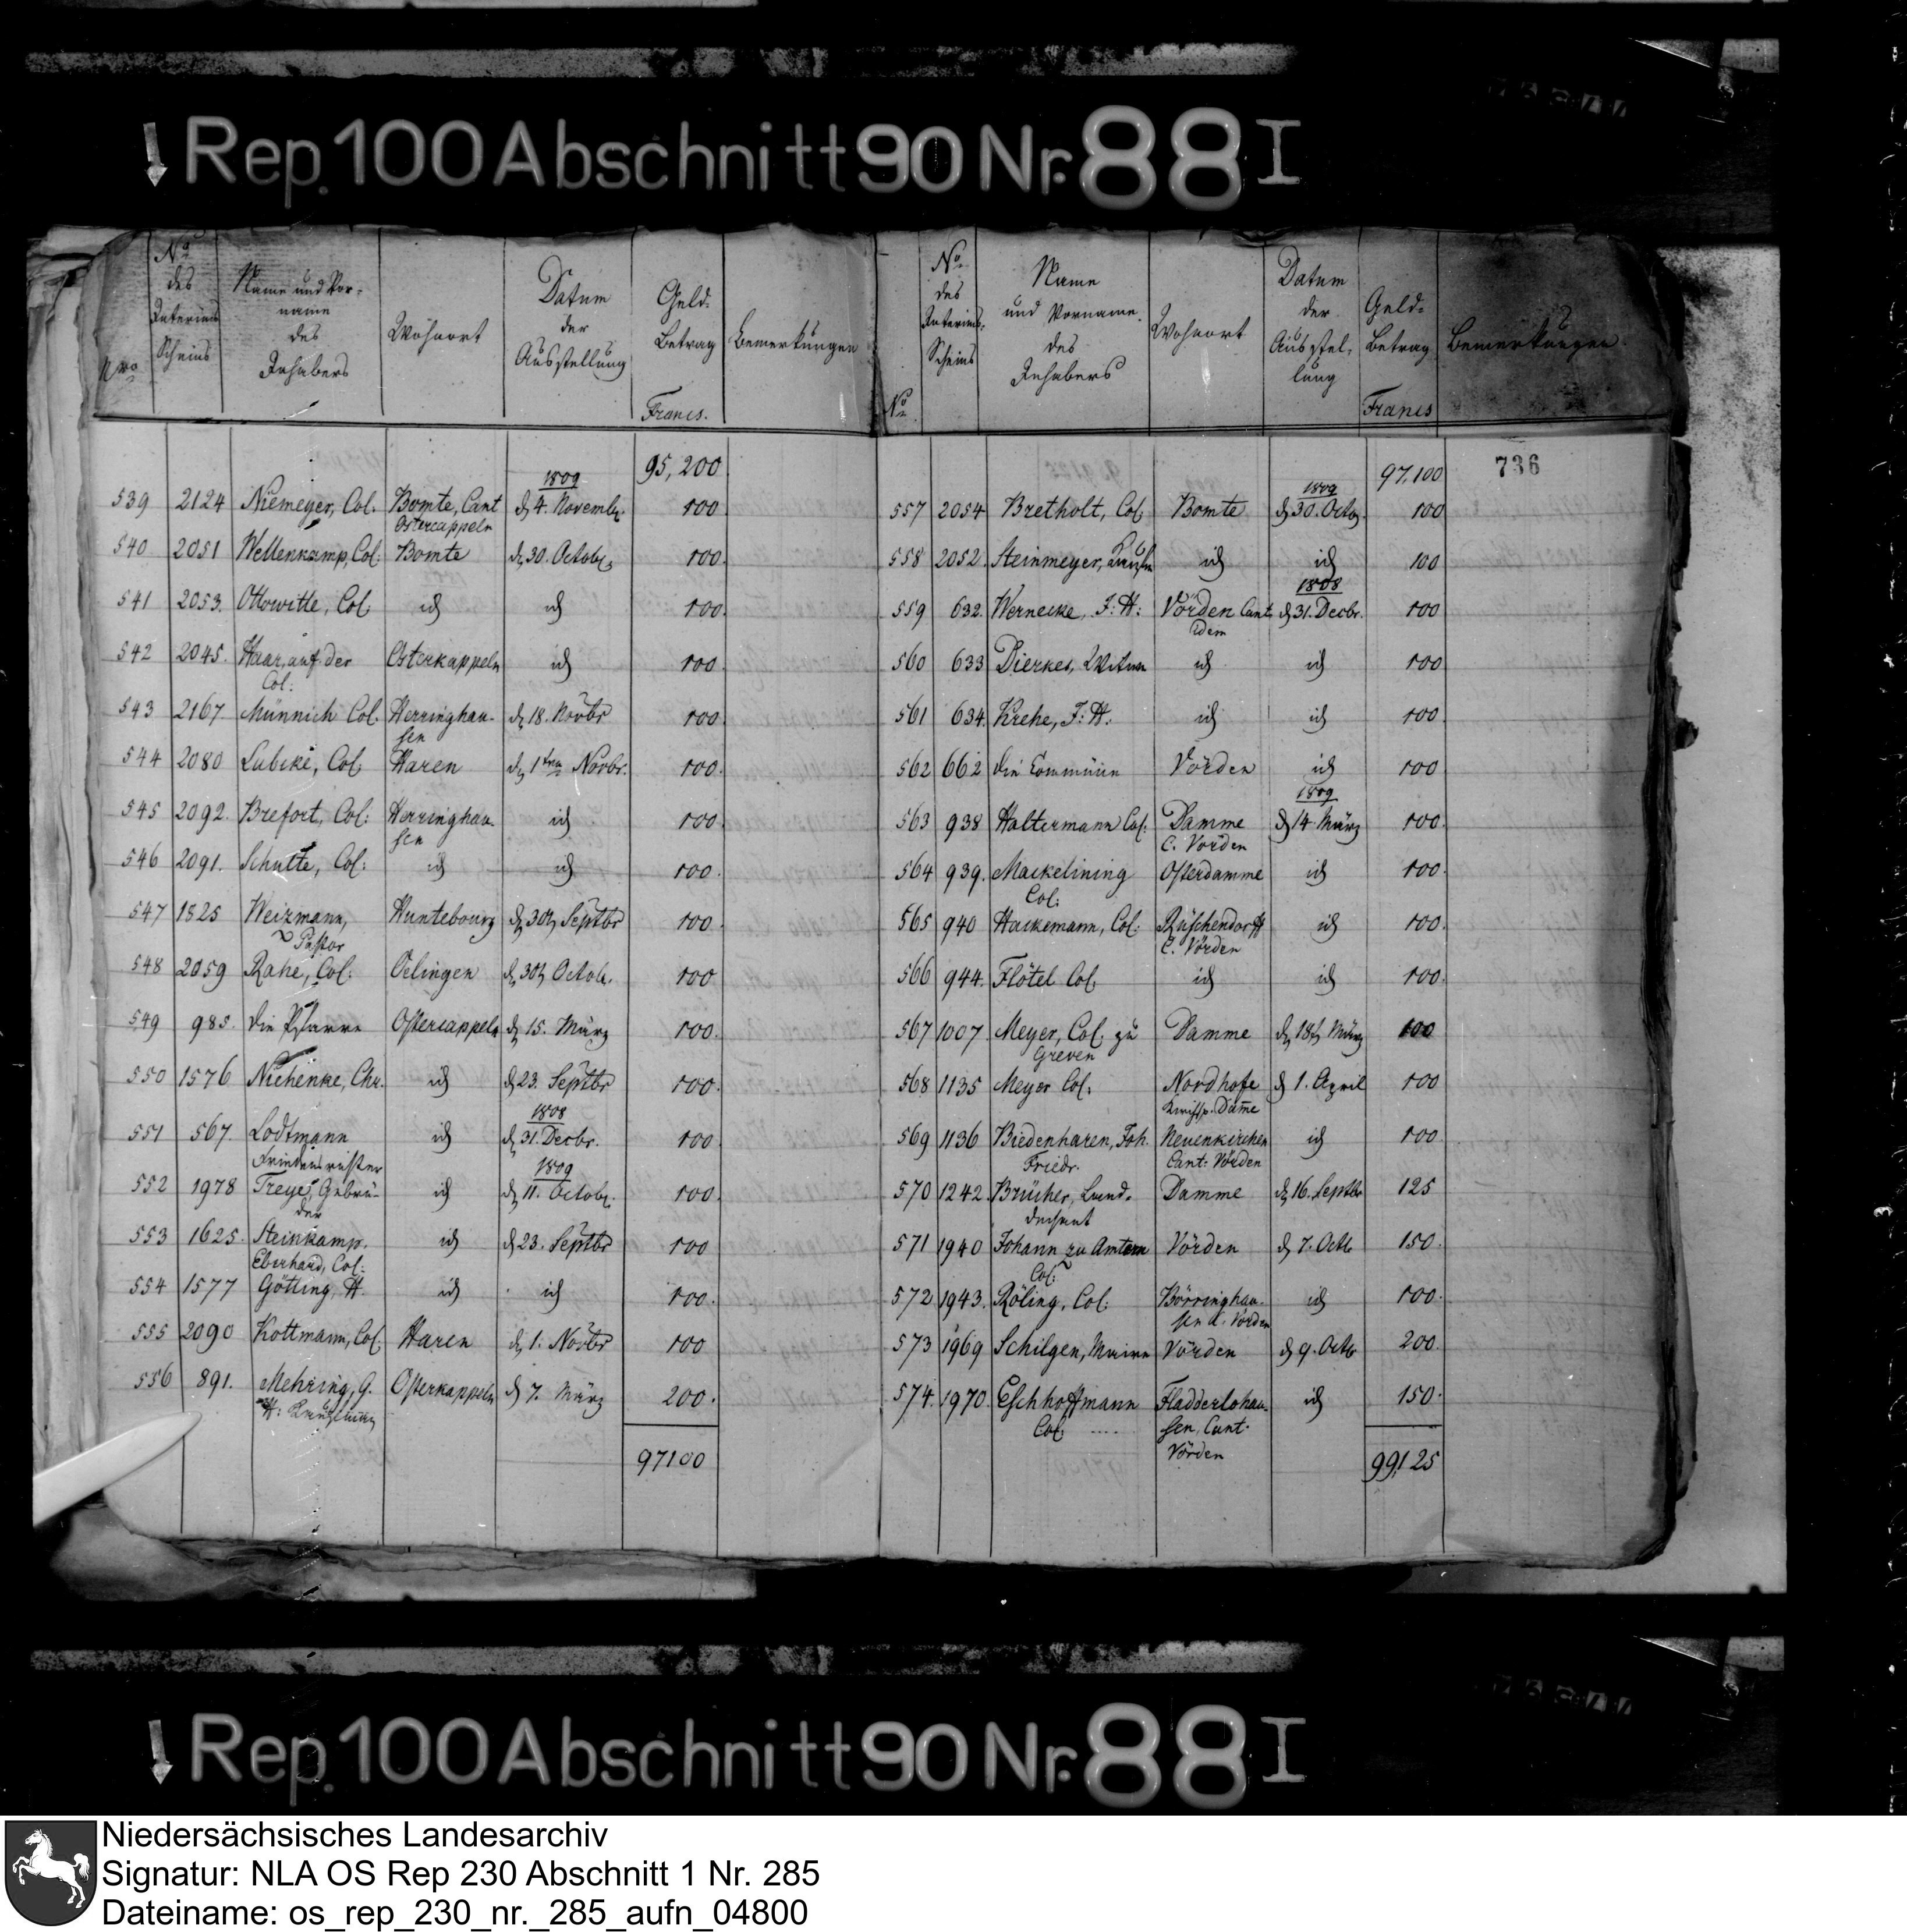 Rep. 100 Abschnitt 90 Nr. 88 I
Nro
No des Interims Scheins
Name und Vorname des Inhabers
Wohnort
Datum der Ausstellung
Geld-Betrag
Francs.
Bemerkungen
95,200
539 2124 Niemeyer, Col. Bomte, Cant Ostercappeln 1809 d 4. Novemb. 100
540 2051 Wellenkamp, Col: Bomte d. 30. Octob. 100.
541 2053. Ottowitte, Col id id 100.
542 2045. Haar, auf der Col: Osterkappeln id 100
543 2167 Münnich Col. Herringhausen d. 18. Novbr 100.
544 2080 Lubcke, Col Haren d. 1ten Novbr. 100.
545 2092. Brefort, Col: Herringhausen id 100.
546 2091. Schutte, Col: id id 100.
547 1825 Weizmann, Pastor Huntebourg d 30t Septbr 100.
548 2059 Rahe, Col: Oelingen d. 30t Octob. 100
549 985. die Pfarre Ostercappeln d 15. März 100.
550 1576 Niehenke, Chr. id d 23. Septbr 100.
551 567. Lodtmann Friedensrichter id 1808 d 31. Decbr. 100
552 1978 Treye, Gebrüder id 1809 d 11. Octob. 100.
553 1625. Steinkamp. Eberhard, Col: id d 23. Septbr 100
554 1577 Götting, H. id id 100.
555 2090 Kottmann, Col. Haren d. 1. Novbr 100
556 891. Mehring, G. H: Kaufmann Osterkappeln d 7. März 200.
97100
No
No des Interims-Scheins
Name und Vorname. des Inhabers
Wohnort
Datum der Ausstellung
Geld-Betrag
Francs
Bemerkungen
736
97,100
557 2054 Bretholt, Col Bomte 1809 d 30. Octb. 100
558 2052. Steinmeyer, Kaufm id id 100
559 632. Wernecke, F: H: Vörden Cant idem 1808 d 31. Decbr. 100
560 633 Dierkes, Witwe id id 100
561 634. Krehe, F: H: id id 100
562 662 die Commüne Vörden id 100
563 938 Haltermann Col: Damme C. Vörden 1809 d 14 März 100.
564 939. Mackelining Col: Osterdamme id 100.
565 940 Hackemann, Col: Rüschendorff C. Vörden id 100.
566 944. Flötel Col. id id 100.
567 1007 Meyer, Col. zu Greven Damme d. 18t März 100
568 1135 Meyer Col: Nordhofe Kirchsp. Dam̄e d 1. April 100
569 1136 Biedenharen, Joh. Friedr. Neuenkirchen Cant: Vörden id 100
570 1242. Brücher, Landdechant Damme d. 16. Septbr 125
571 1940 Johann zu Amtern Col: Vörden d 7. Octb 150.
572 1943. Röling, Col: Börringhausen C. Vörden id 100.
573 1969 Schilgen, Maire Vörden d 9. Octb 200.
574. 1970. Eschhoffmann Col: .... Fladderlohausen, Cant. Vörden id 150.
99,125
Rep. 100 Abschnitt 90 Nr. 88 I
Niedersächsisches Landesarchiv
Signatur: NLA OS Rep 230 Abschnitt 1 Nr. 285
Dateiname: os_rep_230_nr._285_aufn_04800